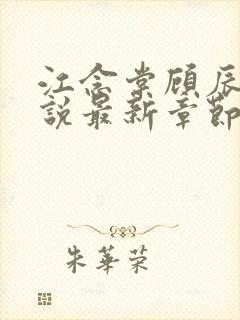 江念棠顾辰
說最新章節
朱華荣